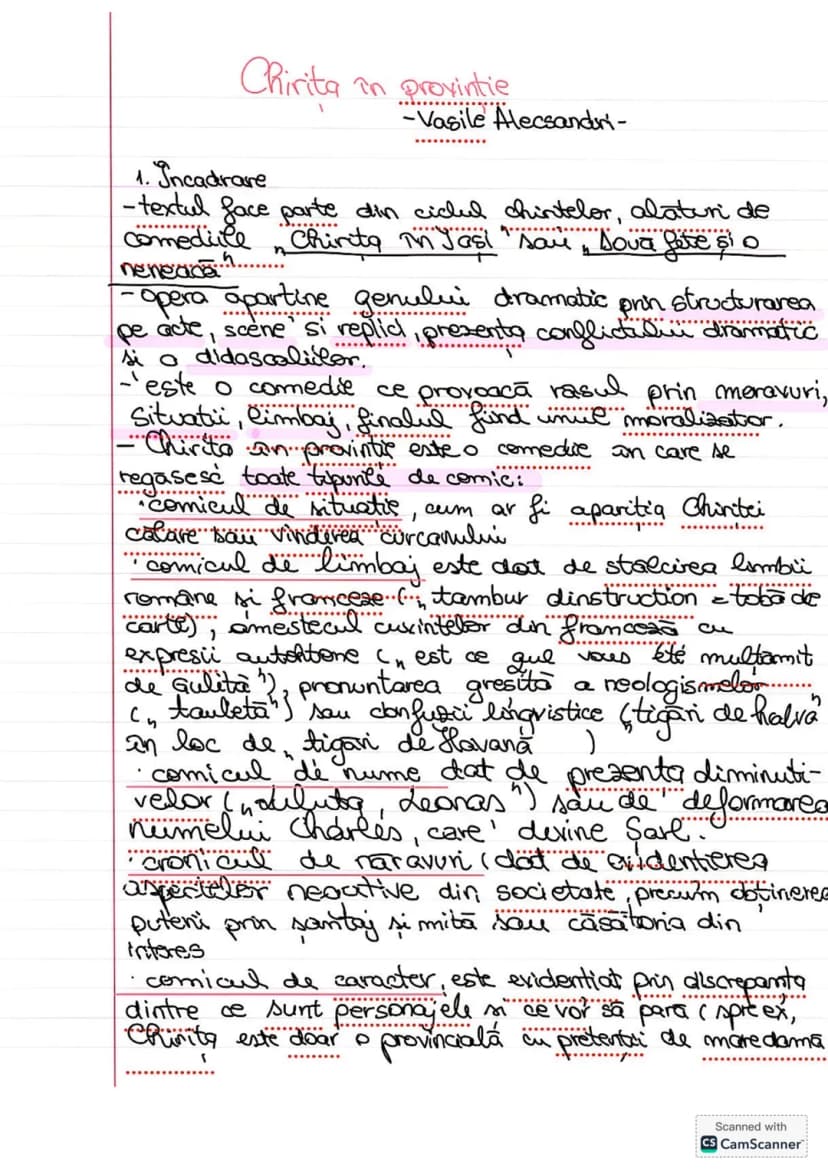 Chirița în provintie
-Vasile Alecsandri-
1. Încadrare
-textul face parte din ciclul chiritelor, alaturi de
comediile „Chirița în Iași" sau „Două fete și o
neneacă"
-opera aparține genului dramatic prin structurarea
pe acte, scene si replici, prezența conflictului dramatic
și a didascaliilor.
-este o comedie ce provoacă rasul prin moravuri,
situatii, limbaj, finalul fiind unul moralizator.
- Chirita în provintie este o comedie în care se
regasesc toate tipurile de comic:
·comicul de situatie, cum ar fi apariția Chiritei
călare sau vinderea curcanului
·comicul de limbaj este dat de stalcirea limbii
romane și franceze („tambur dinstruction = tobă de
carte), amestecul cuvintelor din franceză cu
expresii autohtone („est ce que vous été mulțămit
de Gulită"), pronuntarea gresită a neologismelor
(„tauletă") sau confuzii lingvistice (țigări de halva"
în loc de „tigări de Havană )
·comicul de nume dat de prezența diminuti-
velor („ Leonas") sau de deformarea
numelui Charles, care devine Sarl.
· de naravuri (dat de evidentierea
aspectelor negative din societate, precum obținerea
puterii prin șantaj și mită sau căsătoria din
interes
·comicul de caracter, este evidentiat prin discrepanța
dintre ce sunt personajele si ce vor să pară (spre ex,
Chirița este doar o provincială cu pretenții de mare damă
Scanned with
CS CamScanner